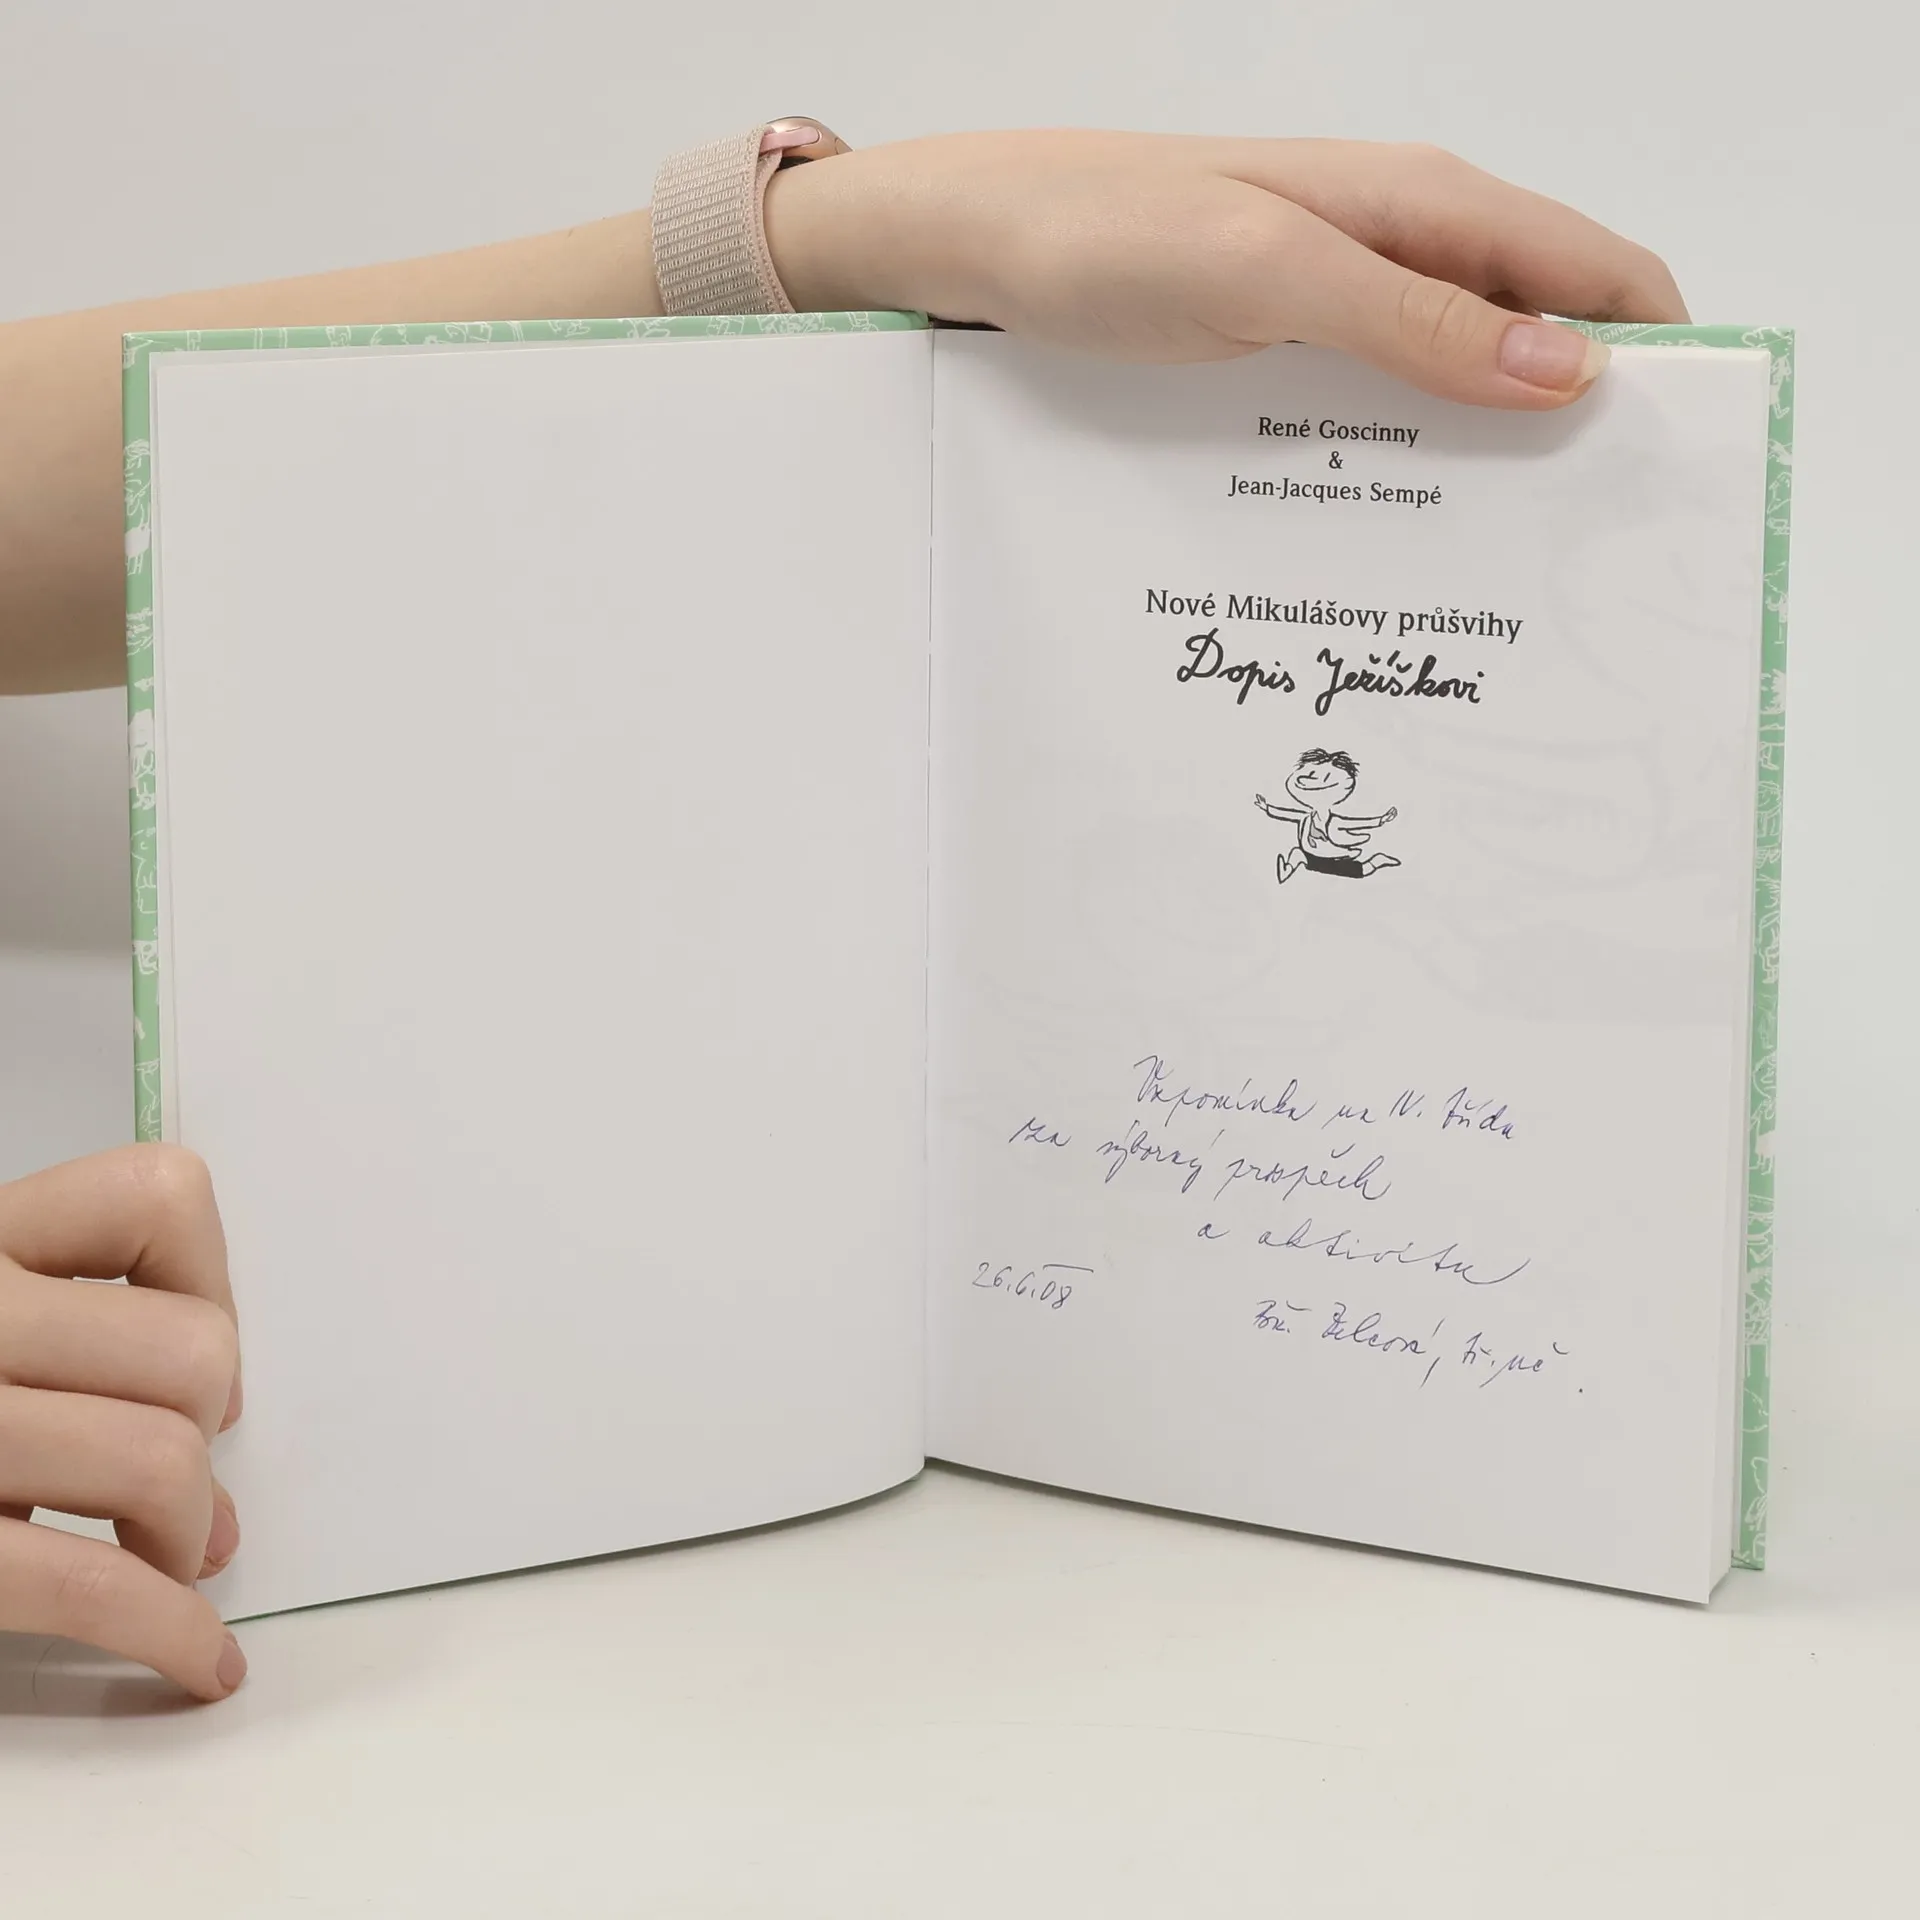 René Goscinny
&
Jean-Jacques Sempé
Nové Mikulášovy průšvihy
Dopis Ježíškovi
Vzpomínka na IV. třídu
za výborný prospěch
a aktivitu
26.6.08
tř. uč.